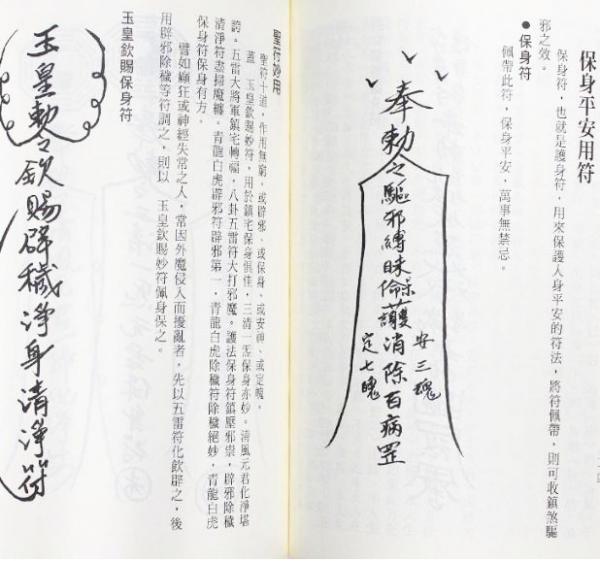 保身平安用符
保身符，也就是護身符，用來保護人身平安的符法，將符佩帶，則可收鎮煞驅
邪之效。
●保身符
佩帶此符，保身平安，萬事無禁忌。
奉勅令驅邪縛
消除百病罡
安三魂
定七魄
聖符妙用
聖符十道，作用無窮、或辟邪、或保身、或安神、或定魂。
蓋 玉皇欽賜妙符，用於鎮宅保身俱佳，三清一炁保身亦妙。清風元君化淨堪
誇。五雷大將軍鎮宅轉福，八卦五雷符大打邪魔。護法保身符鎮壓邪祟，辟邪除穢
清淨符盡掃魔纏。青龍白虎辟邪符辟邪第一，青龍白虎除穢符除穢絕妙，青龍白虎
保身符保身有方。
譬如癲狂或神經失常之人，常因外魔侵入而擾亂者，先以五雷符化飲辟之，後
用辟邪除穢等符調之，則以 玉皇欽賜妙符佩身保之。
玉皇欽賜保身符
玉皇勅令欽賜辟穢淨身清淨符